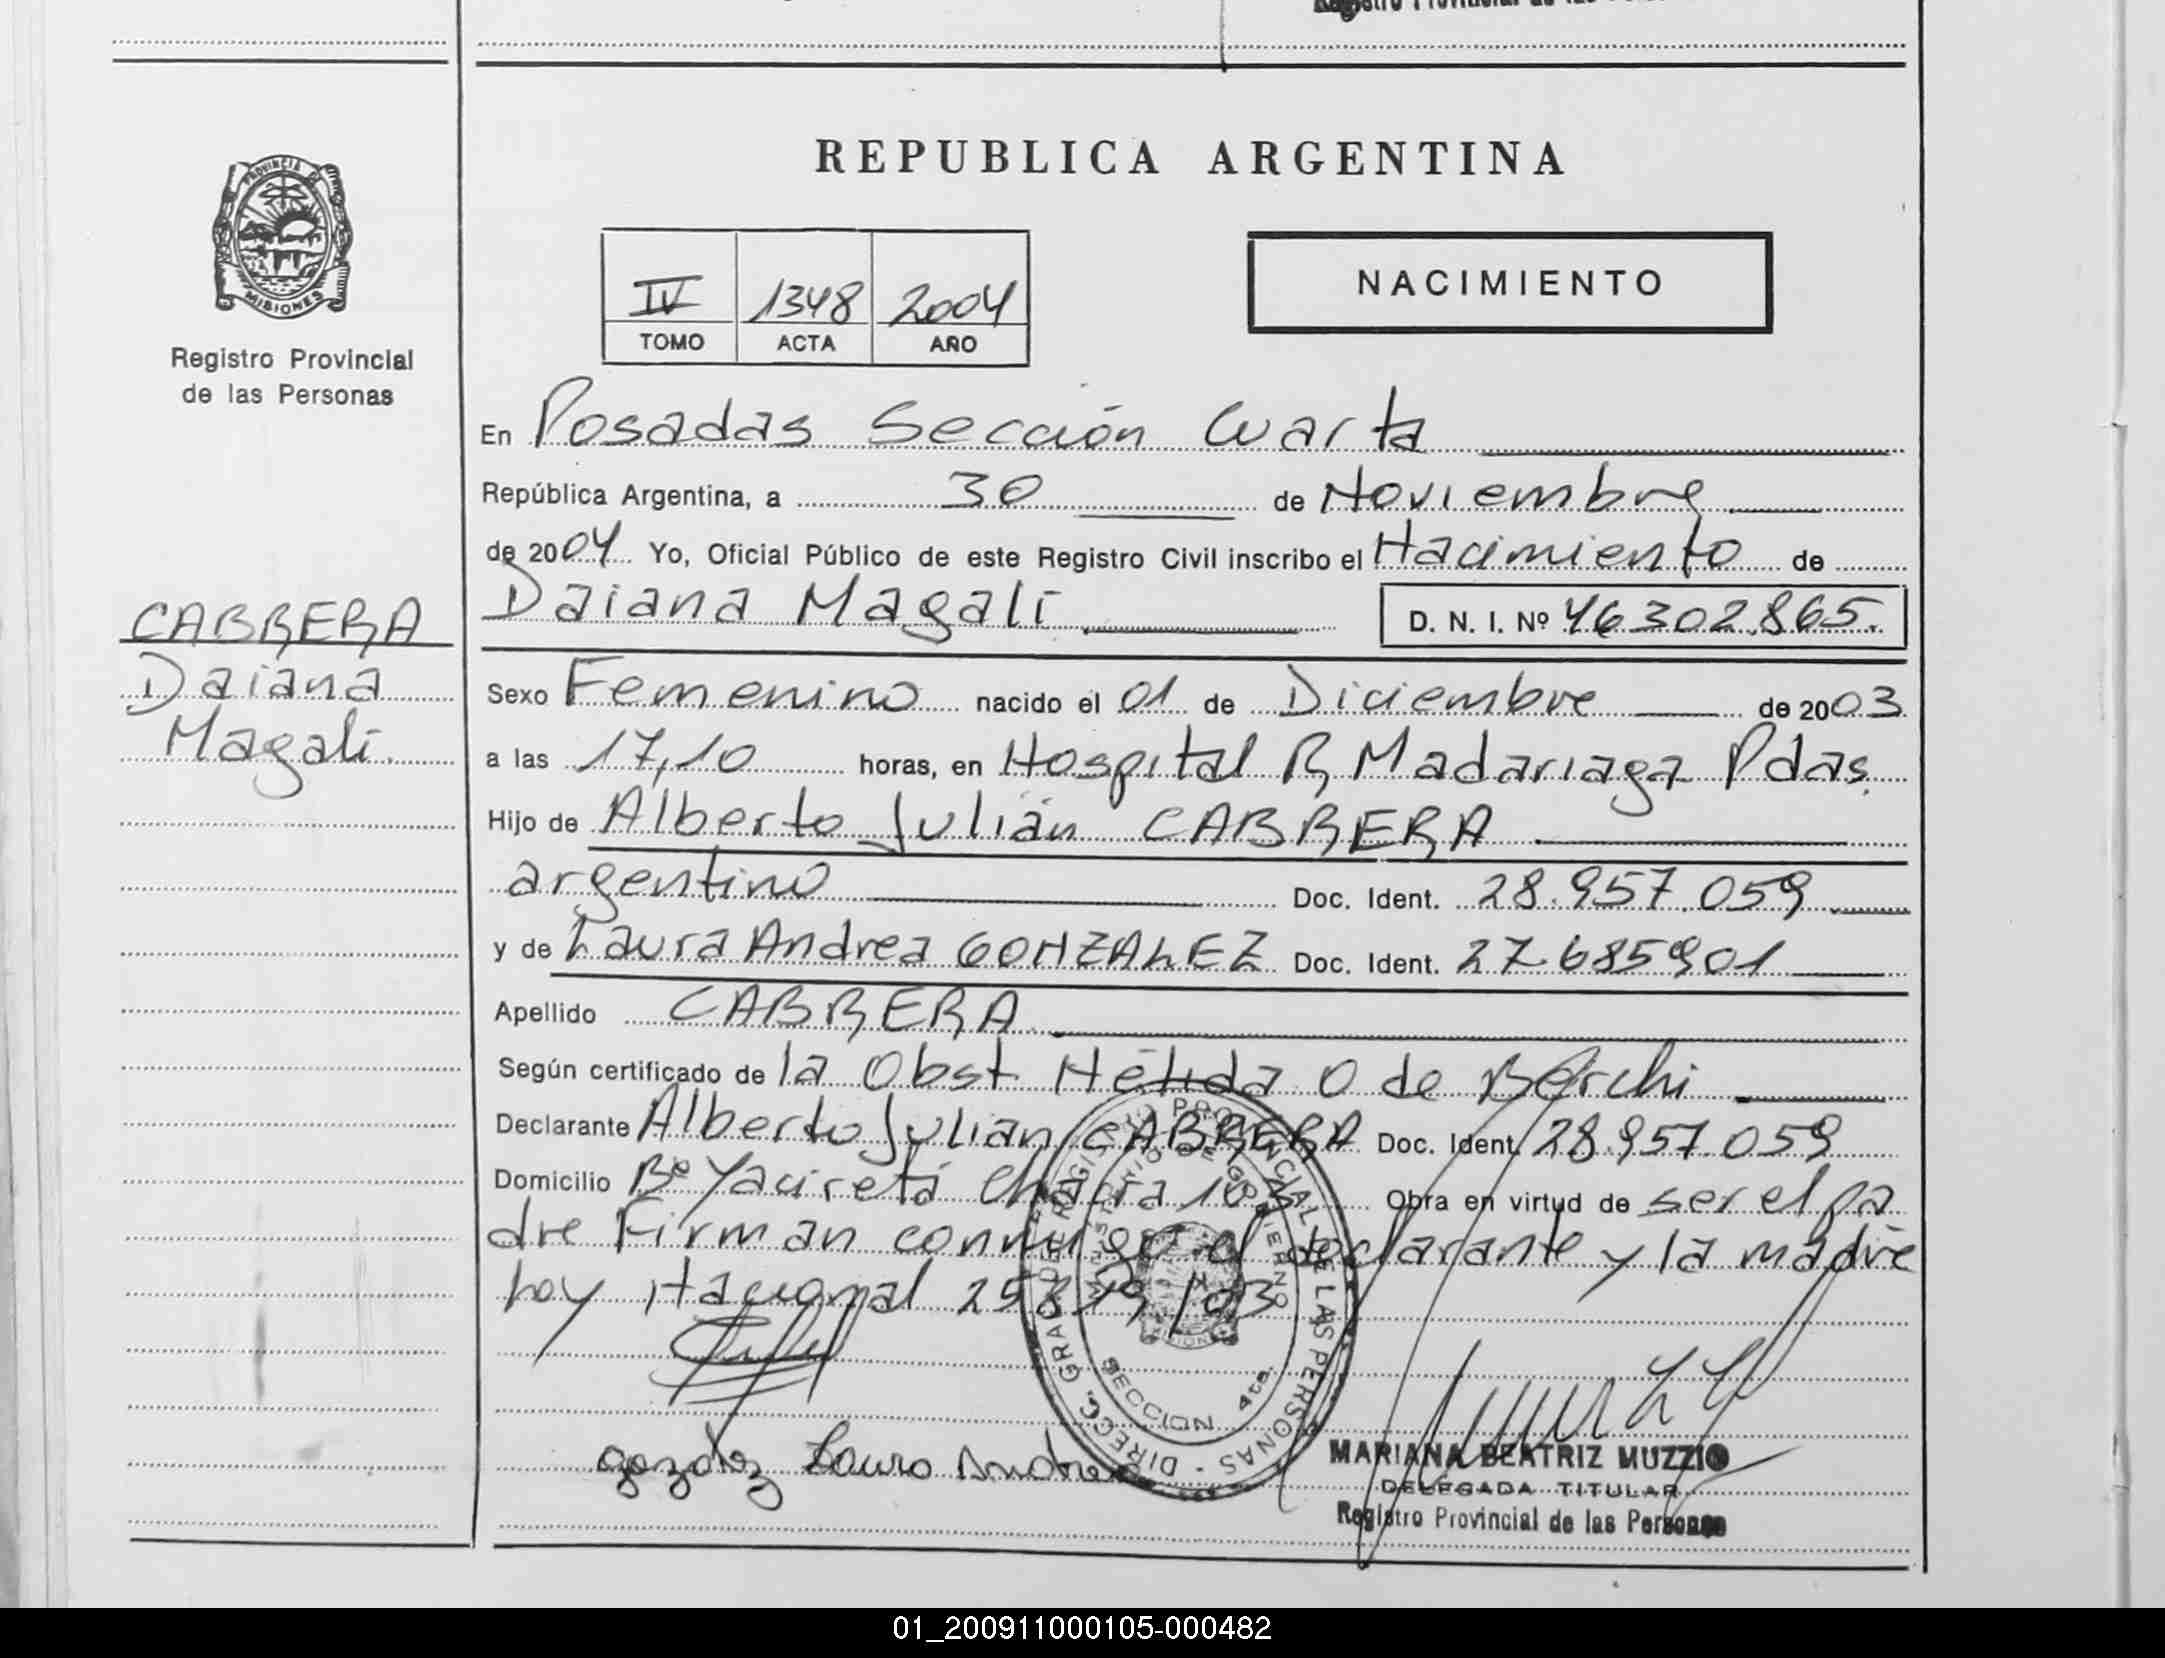 REPUBLICA ARGENTINA
PROVINCIA DE
MISIONES
Registro Provincial
de las Personas
IV 1348 2004
TOMO ACTA AÑO
NACIMIENTO
En Posadas Sección Cuarta
República Argentina, a 30 de Noviembre
de 2004 Yo, Oficial Público de este Registro Civil inscribo el Nacimiento de
Daiana Magalí D. N. I. Nº 46302.865.
CABRERA
Daiana
Magalí.
Sexo Femenino nacido el 01 de Diciembre de 2003
a las 17,10 horas, en Hospital R Madariaga Pdas.
Hijo de Alberto Julián CABRERA
argentino Doc. Ident. 28.957.059
y de Laura Andrea GONZALEZ Doc. Ident. 27.685901
Apellido CABRERA
Según certificado de la Obst Nélida O de Berchi
Declarante Alberto Julián CABRERA Doc. Ident. 28.957.059
Domicilio Bº Yaciretá Chacra Obra en virtud de ser el pa
dre Firman conmigo el declarante y la madre
hoy Nacional
DIRECC. GRAL. DE REGISTRO PROVINCIAL DE LAS PERSONAS
MINISTERIO DE GOBIERNO
SECCION 4ta.
gonzalez Laura Andrea
MARIANA BEATRIZ MUZZIO
DELEGADA TITULAR
Registro Provincial de las Personas
01_200911000105-000482